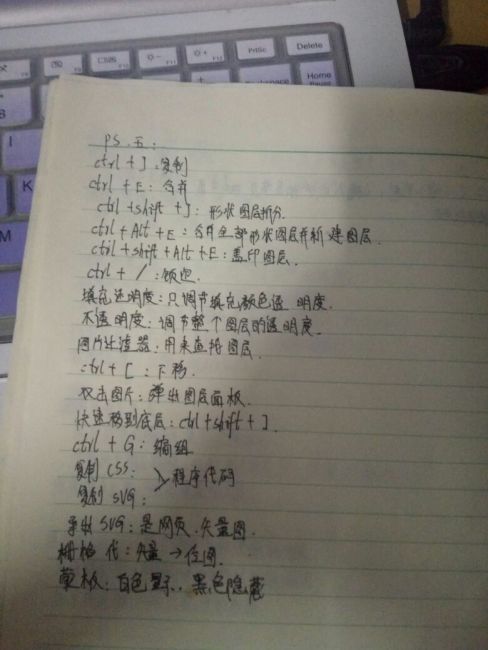 F10
F11
F12
PrtSc
Delete
Home
PS.五:
ctrl + J:复制
ctrl + E:合并
ctrl +shift +J:形状图层拆分.
ctrl + Alt + E:合并全部形状图层并新建图层.
ctrl + shift + Alt + E:盖印图层.
ctrl + /:锁定.
填充透明度:只调节填充颜色透 明度.
不透明度:调节整个图层的透明度.
图片过滤器:用来查找图层.
ctrl + [:下移.
双击图片:弹出图层面板.
快速移到底层:ctrl + shift + ].
ctrl + G:编组
复制 CSS:
程序代码
复制 SVG:
导出 SVG:是网页.矢量图.
栅格 化:矢量→位图.
蒙板:白色显示.黑色隐藏